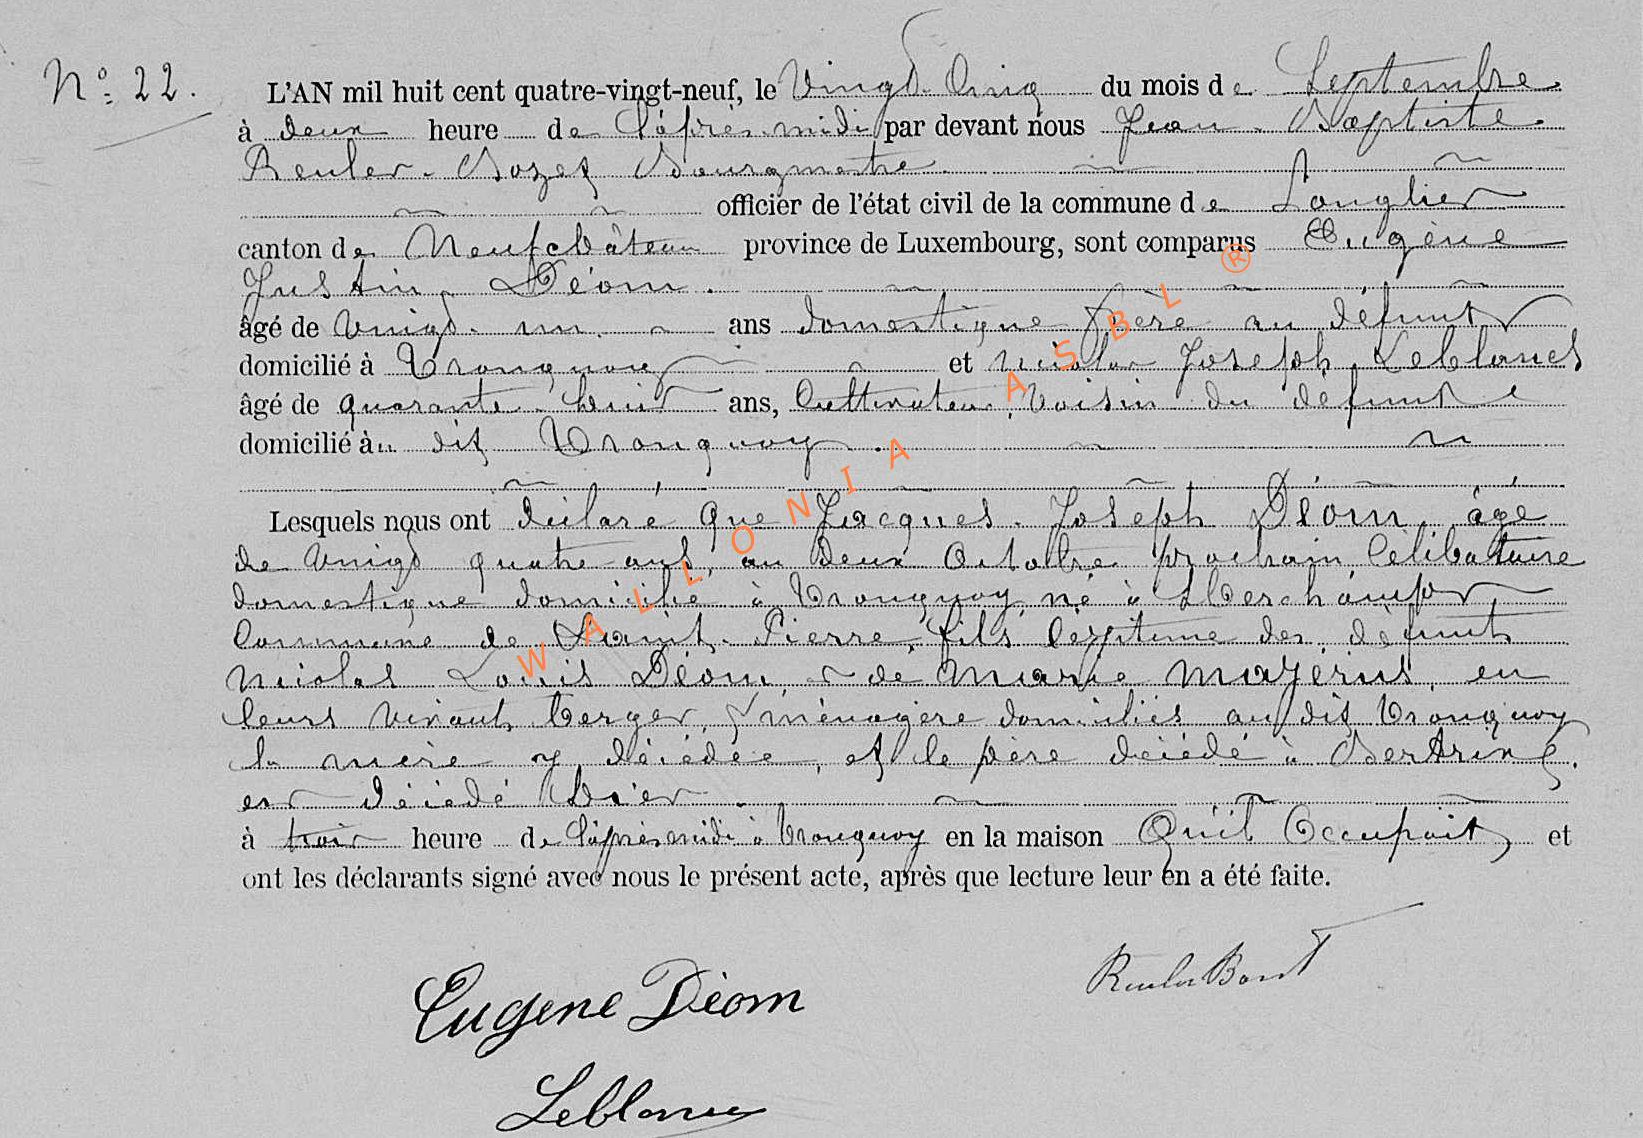 N° 22.
L'AN mil huit cent quatre-vingt-neuf, le Vingt Cinq du mois de Septembre
à deux heure de l'après-midi par devant nous Jean-Baptiste
Reuler-Bozet Bourgmestre
officier de l'état civil de la commune de Longlier
canton de Neufchâteau province de Luxembourg, sont comparus Eugène
Justin Déom.
âgé de Vingt-un ans domestique frère au défunt
domicilié à Tronquoy et Nicolas Joseph Leblancs
âgé de quarante-huit ans, Cultivateur, Voisin du défunt
domicilié au dit Tronquoy.
Lesquels nous ont déclaré que Jacques-Joseph Déom, âgé
de Vingt quatre ans, au deux Octobre prochain, Célibataire
domestique domicilié à Tronquoy, né à Herchamps
Commune de Saint-Pierre, fils légitime des défunts
Nicolas Louis Déom, de Marie Mayérus, en
leurs vivant, berger, & ménagère domiciliés au dit Tronquoy
la mère y décédée, et le père décédé à Bertrix,
est décédé hier
à trois heure de l'après midi à Tronquoy en la maison Qu'il Occupait, et
ont les déclarants signé avec nous le présent acte, après que lecture leur en a été faite.
Eugene Déom
Leblanc
WALLONIA ASBL ®